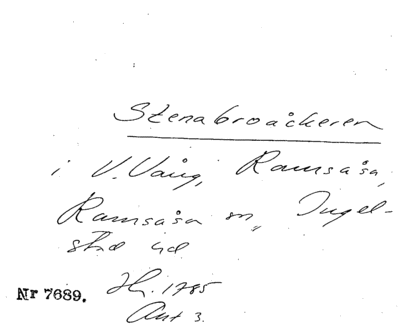 Stenabroåckeren
i V. Vång, Ramsåsa,
Ramsåsa sn, Ingel-
stad hd
Nr 7689. Hh. 1785
Akt 3.